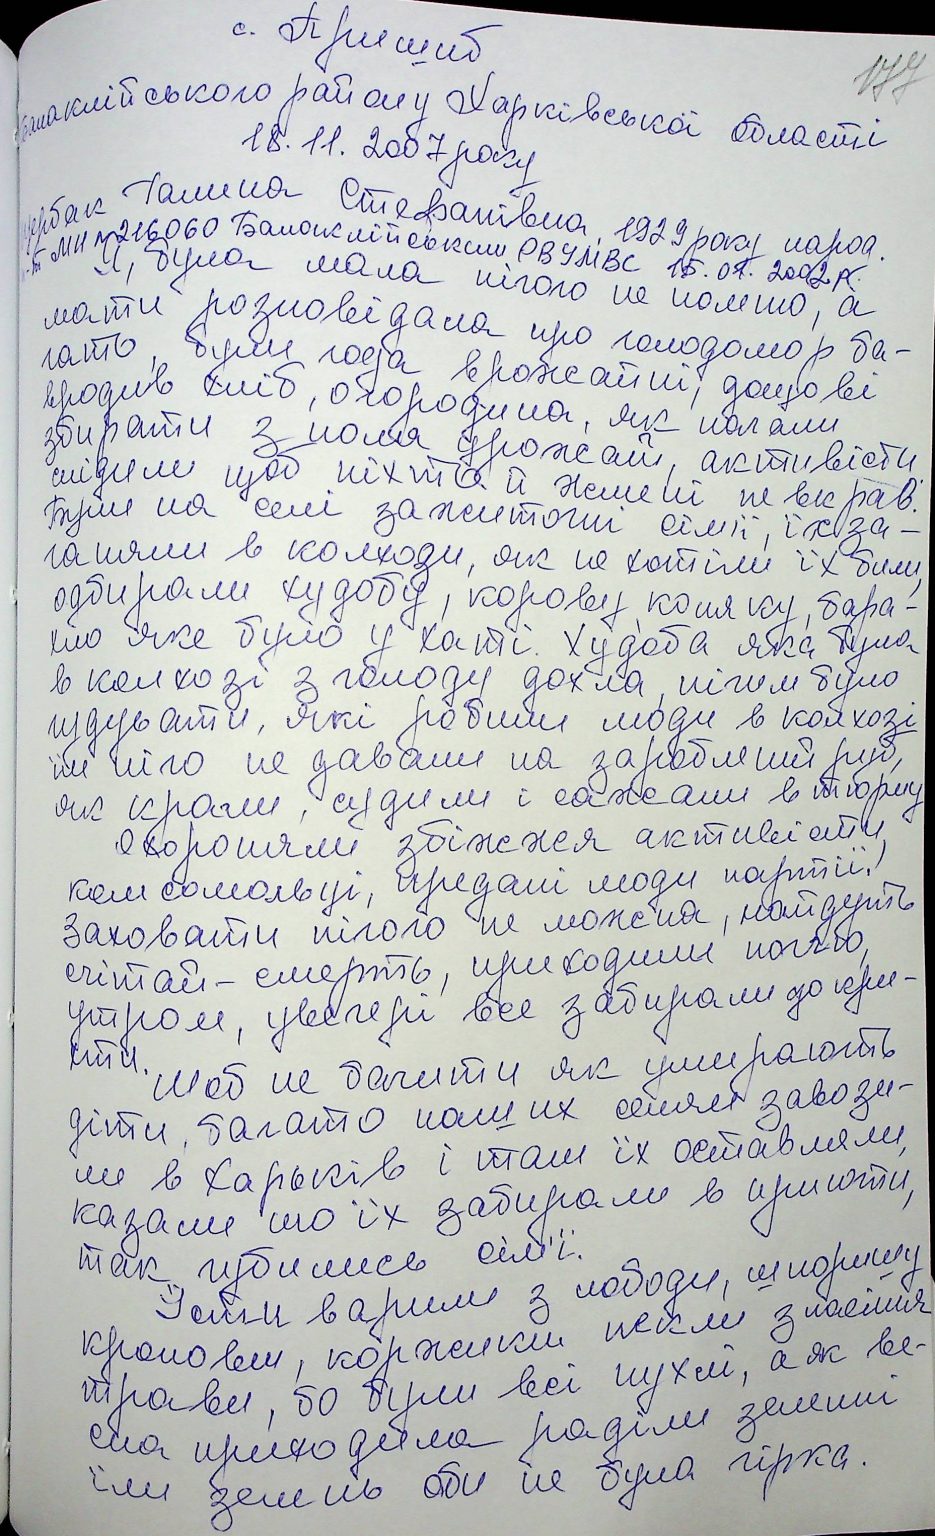 с. Пришиб
177
Балаклійського району Харківської області
18. 11. 2007 року
Щербак Галина Степанівна, 1929 року народ.
МН №216060 Балаклійським РВУМВС 15.01.2002р.
Я, була мала нічого не помню, а
мати розповідала про голодомор ба-
гато, були года врожайні, дощові
вродив хліб, огородина, як почали
збирати з поля урожай, активісти
слідили щоб ніхто й жмені не вкрав.
Були на селі зажиточні сімї, їх за-
ганяли в колходи, як не хотіли їх били,
одбирали худобу, корову, коняку, бара-
хло яке було у хаті. Худоба яка була
в колхозі з голоду дохла, нічим було
годувати, які робили люди в колхозі
їм нічо не давали на зароблений руб,
як крали, судили і сажали в тюрму
Охороняли збіжжя активісти,
комсомольці, предані люди партії!
Заховати нічого не можна, найдуть
счітай - смерть, приходили ноччю,
утром, увечері все забирали до кри-
хти.
Шоб не бачити як умирають
діти, багато наших сімян завози-
ли в Харьків і там їх оставляли,
казали шо їх забирали в приюти,
так губились сімї.
Їсти варили з лободи, шпоришу
кропови, коржики пекли з насіння
трави, бо були всі пухлі, а як ве-
сна приходила раділи зелені
їли зелень аби не була гірка.